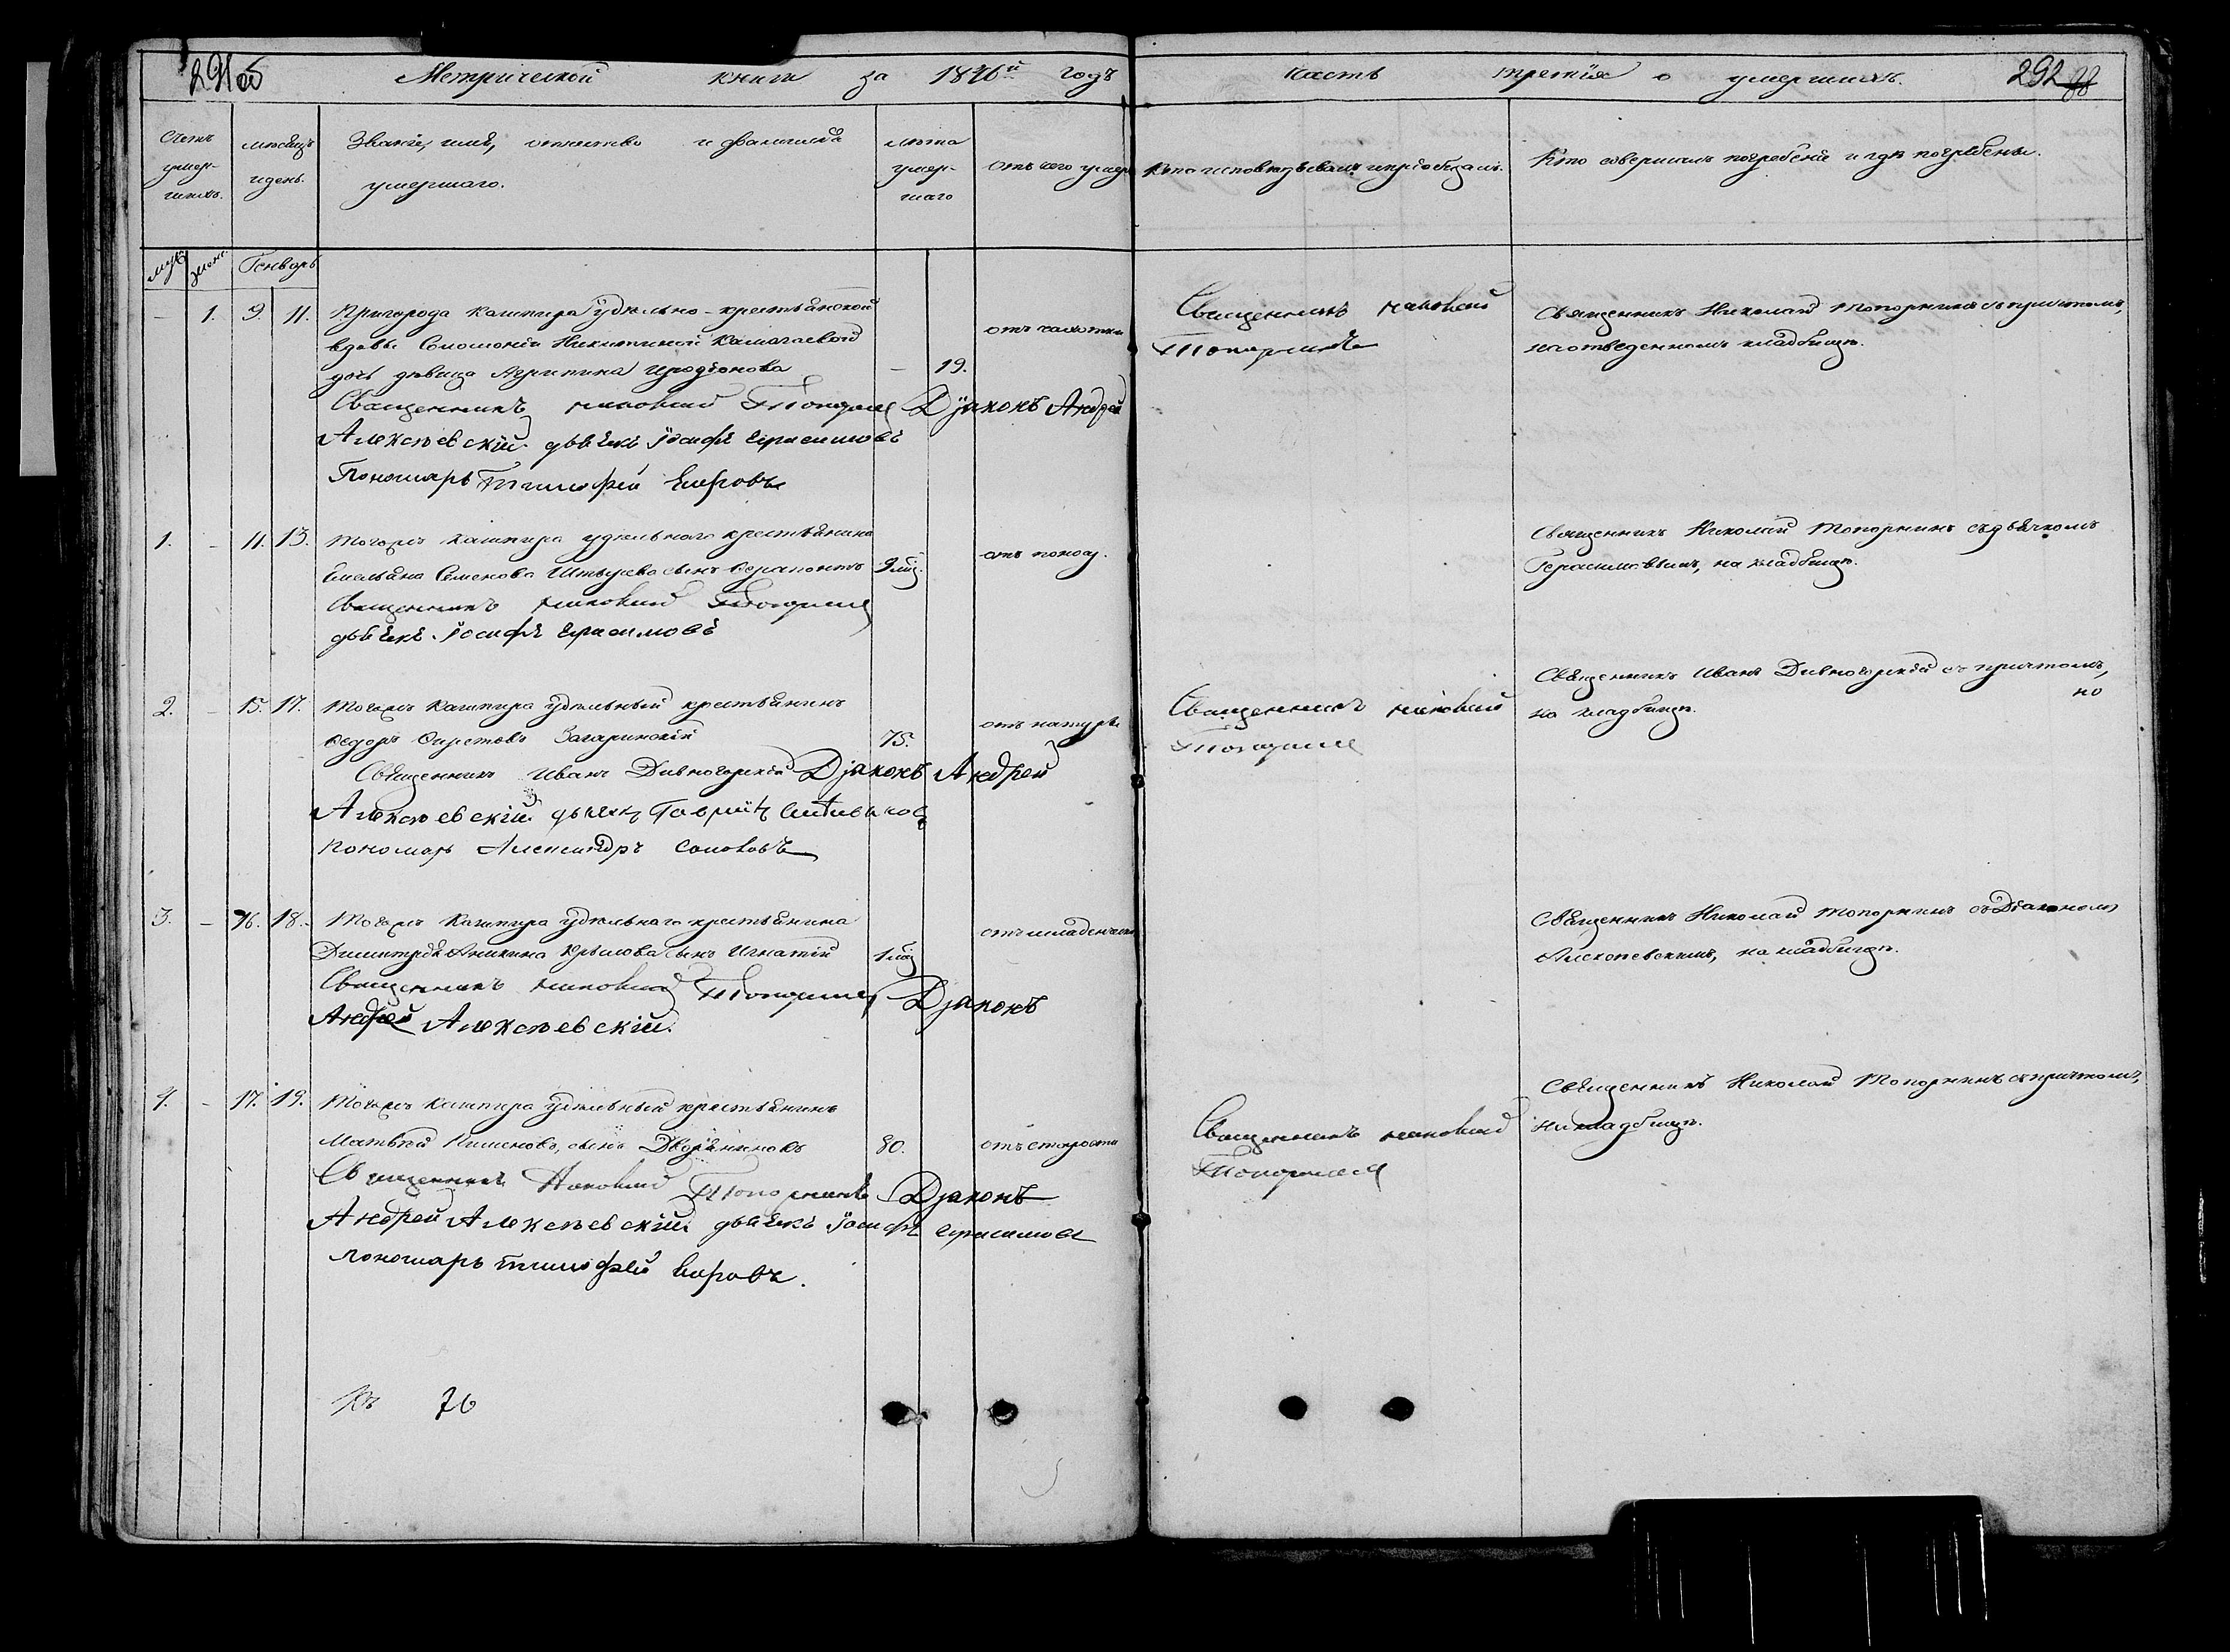 291об Метрической книги за 1846й годъ
часть третія о умершихъ. 292
Счетъ умер-шихъ.
мѣсяцъ и день.
Званіе, имя, отчество и фамилія
умершаго.
лѣта умер-шаго
отъ чего умеръ
Кто исповѣдывалъ и пріобщалъ.
Кто совершалъ погребеніе и гдѣ погребены.
муж. женс. Генварь
– 1. 9. 11. Пригорода Кашпира удѣльно-крестьянской
вдовы Соломоніи Никитиной
дочь дѣвица Агрипина Иродіонова – 19. отъ чахотки
Священникъ Николай Топорнинъ Діаконъ Андрей
Алексѣевскій дьячекъ Іосифъ Герасимовъ
Пономарь Тимофей
Священникъ Николай
Топорнинъ
Священникъ Николай Топорнинъ съ причтомъ,
на отведенномъ кладбищѣ.
1. – 11. 13. Тогожъ Кашпира удѣльнаго крестьянина
Емельяна Семенова сынъ Ферапонтъ 9 мѣс. отъ поносу.
Священникъ Николай Топорнинъ
дьячекъ Іосифъ Герасимовъ
Священникъ Николай Топорнинъ съ дьячкомъ
Герасимовымъ, на кладбищѣ.
2. – 15. 17. Тогожъ Кашпира удѣльный крестьянинъ
Федоръ Загаринскій 75. отъ натуры
Священникъ Иванъ Дивногорскій Діаконъ Андрей
Алексѣевскій дьячекъ Гавріилъ
пономарь Александръ Соловьевъ
Священникъ Николай
Топорнинъ
Священникъ Иванъ Дивногорскій съ причтомъ,
на кладбищѣ.
3. – 16. 18. Тогожъ Кашпира удѣльнаго крестьянина
Димитрія Аникина Крылова сынъ Игнатій 1 мѣс. отъ младенческ
Священникъ Николай Топорнинъ Діаконъ
Андрей Алексѣевскій.
Священникъ Николай Топорнинъ съ Діакономъ
Алексѣевскимъ, на кладбищѣ.
4. – 17. 19. Тогожъ Кашпира удѣльный крестьянинъ
Матвѣй Пименовъ, сынъ Дворяниновъ 80. отъ старости
Священникъ Николай Топорнинъ Діаконъ
Андрей Алексѣевскій дьячекъ Іосифъ Герасимовъ
пономарь Тимофей
Священникъ Николай
Топорнинъ
Священникъ Николай Топорнинъ съ причтомъ,
на кладбищѣ.
76